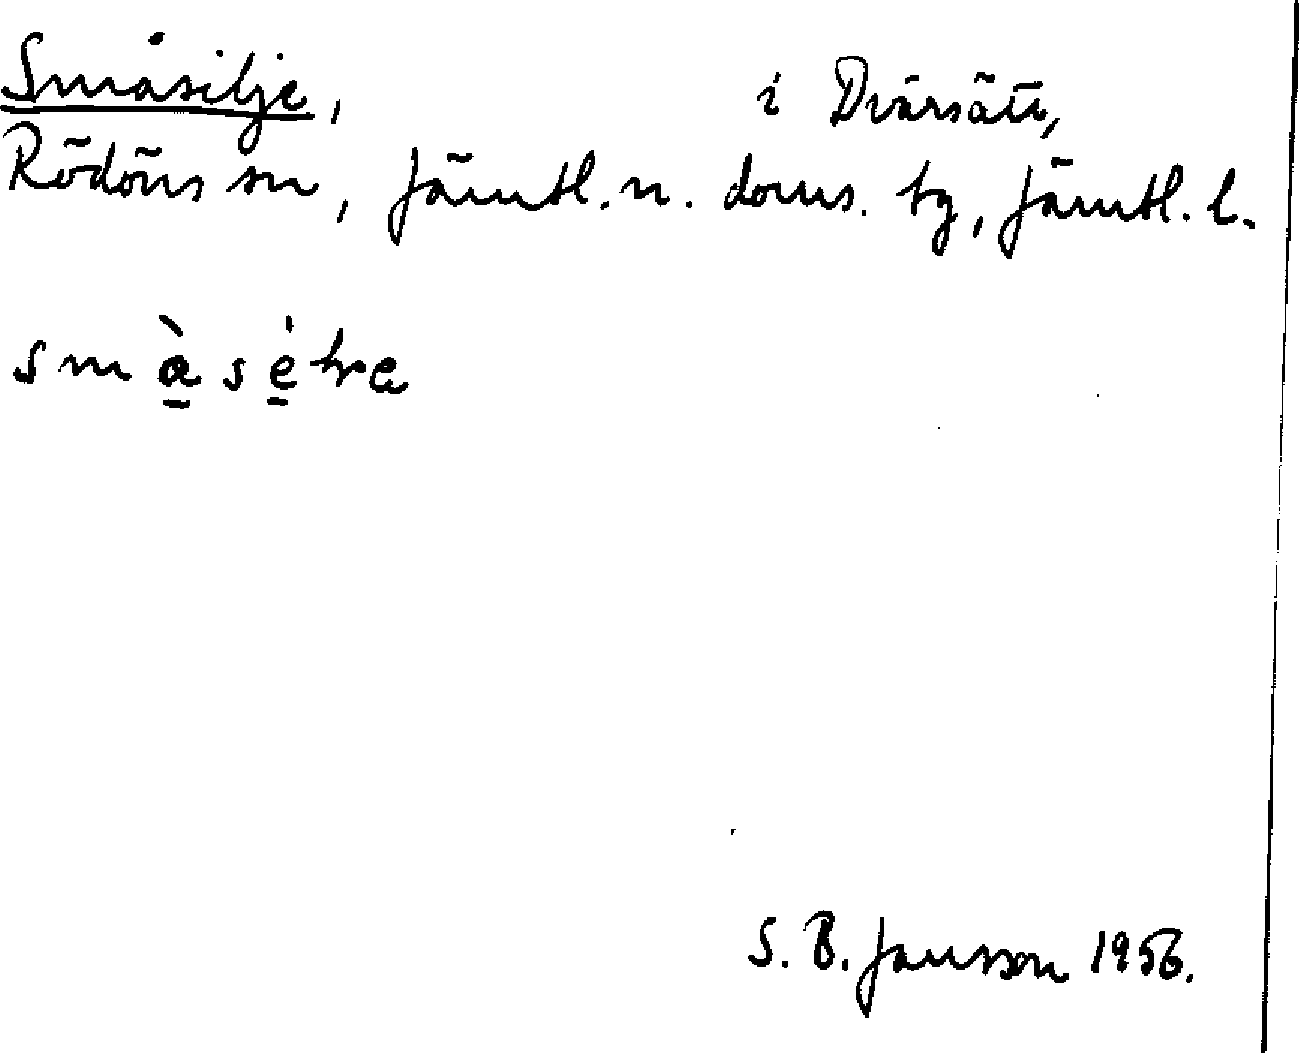 Småsilje, i Dvärsätt,
Rödöns sn, Jämtl. n. doms. tg, Jämtl. l.
smàsètra
S. B. Jansson 1956.